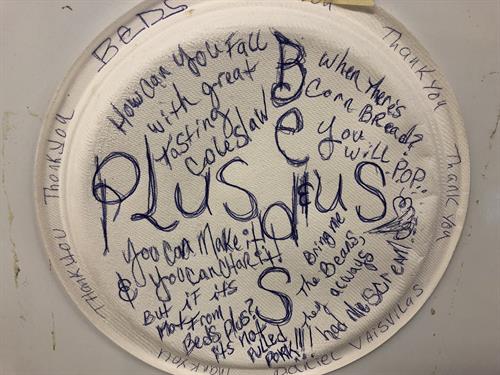 BEDS
Thank You
Thank You
Thank You
Thank You
Thank You
Daniel Vaisvilas
How Can You Fall
with great
tasting
coleslaw
Beds
when there's
Corn Bread?
You
will POP!!
PLUS plus
You can Make it!
& you can chart it!
But if its
Not from
Beds plus?
its not
pulled
Pork!!!
Bring me
the Beans,
they always
had me Scream!